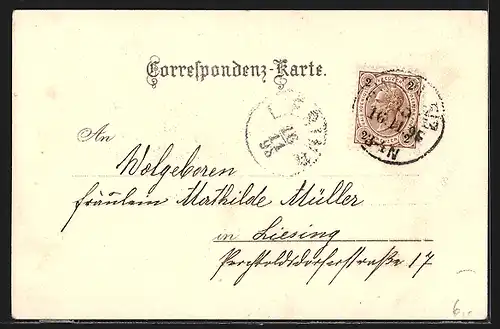 Correspondenz-Karte.
2 2
16 11 98
An
Wolgeboren
fräulein Mathilde Müller
in Liesing
Perchtoldsdorferstraße 17
6,-